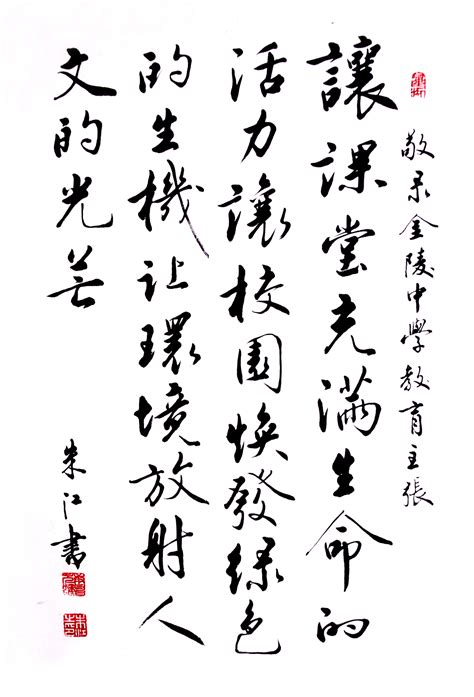 敬录金陵中学教育主張
讓课堂充满生命的
活力讓校園焕發绿色
的生機让環境放射人
文的光芒
朱江書